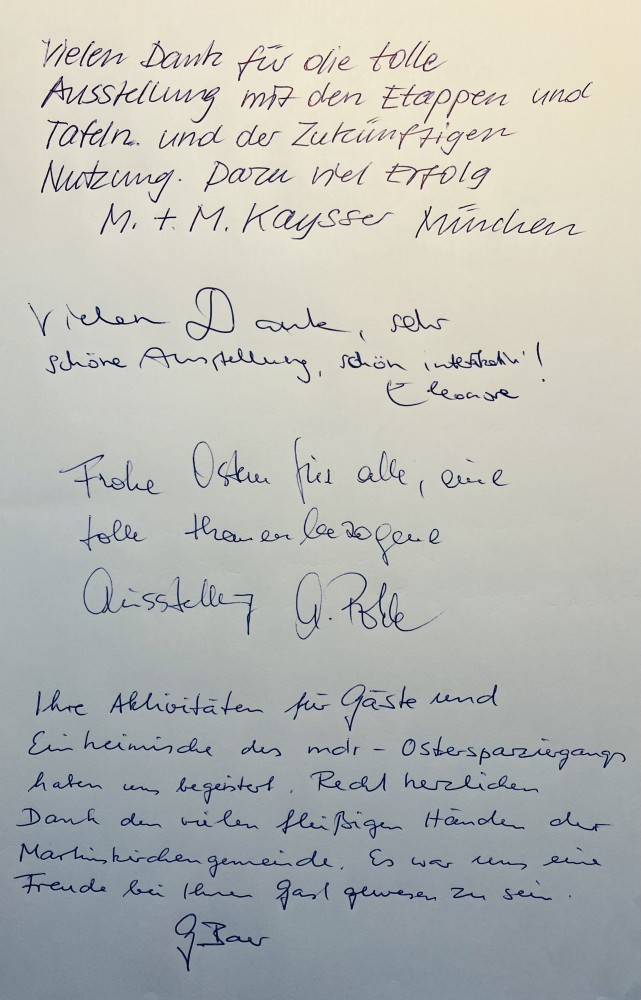 Vielen Dank für die tolle
Ausstellung mit den Etappen und
Tafeln. und der Zukünftigen
Nutzung. Dazu viel Erfolg
M. + M. Kaysser München
Vielen Dank, sehr
schöne Ausstellung, schön interaktiv!
Eleonore
Frohe Ostern für alle, eine
tolle themenbezogene
Ausstellung
Ihre Aktivitäten für Gäste und
Einheimische des mdr - Osterspaziergangs
haben uns begeistert. Recht herzlichen
Dank den vielen fleißigen Händen der
Martinskirchengemeinde. Es war uns eine
Freude bei Ihnen Gast gewesen zu sein.